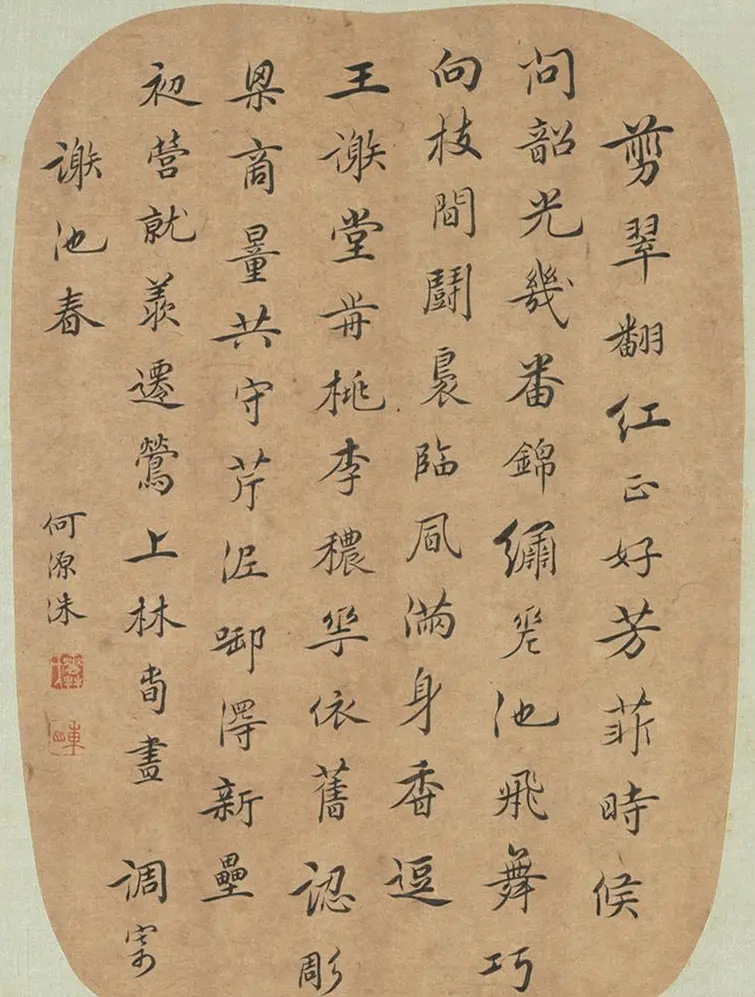 剪翠翻紅正好芳菲時候
問韶光幾番錦繡差池飛舞巧
向枝間鬭裊臨風滿身香逗
王謝堂前桃李穠華依舊認彫
梁商量共守芹泥啣得新壘
初營就羨遷鶯上林春晝 調寄
謝池春
何源洙